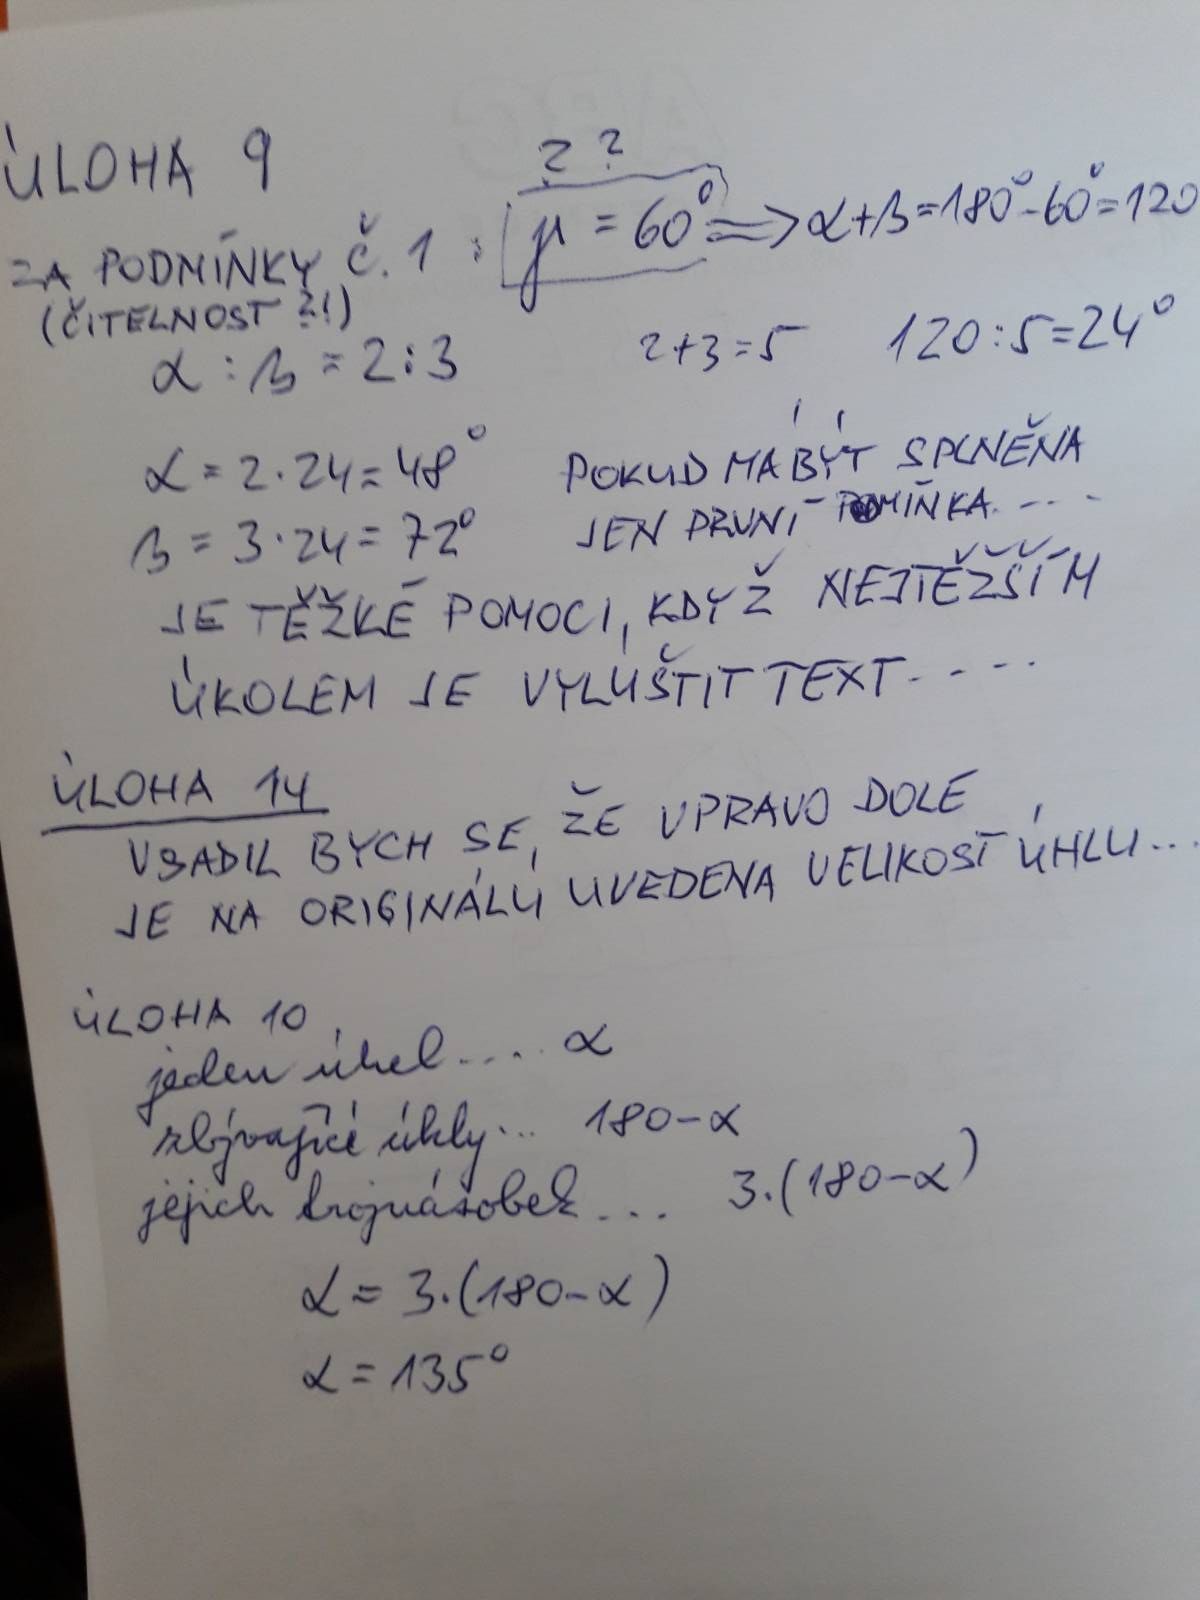 ÚLOHA 9
? ?
ZA PODMÍNKY Č. 1 : γ = 60° => α+β=180°-60°=120
(ČITELNOST ?!)
α : β = 2:3 2+3=5 120:5=24°
α = 2·24=48° POKUD MÁ BÝT SPLNĚNA
β = 3·24=72° JEN PRVNÍ PODMÍNKA....
JE TĚŽKÉ POMOCI, KDYŽ NEJTĚŽŠÍM
ÚKOLEM JE VYLUŠTIT TEXT....
ÚLOHA 14
VSADIL BYCH SE, ŽE VPRAVO DOLE
JE NA ORIGINÁLU UVEDENA VELIKOST ÚHLU...
ÚLOHA 10
jeden úhel.... α
zbývající úhly... 180-α
jejich trojnásobek... 3·(180-α)
α = 3·(180-α)
α = 135°